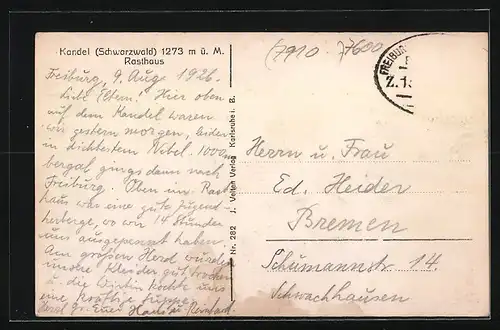 Kandel (Schwarzwald) 1273 m ü. M.
Rasthaus
Freiburg, 9. Aug 1926.
Liebe Eltern. Hier oben
auf dem Kandel waren
wir gestern morgen, leider
in dichtestem Nebel. 1000 m
bergab gings dann nach
Freiburg. Oben im Rast
haus war eine gute Jugend
herberge, wo wir 14 Stunden
uns ausgepennt haben.
Am großen Herd wurden
Kleider gut trocken
u. die Wirtin kochte uns
eine kräftige Suppe.
Nr. 282 J. Velten Verlag Karlsruhe i. B.
(7910) 7600
FREIBURG
Z.15
Herrn u. Frau
Ed. Heider
Bremen
Schumannstr 14.
Schwachhausen